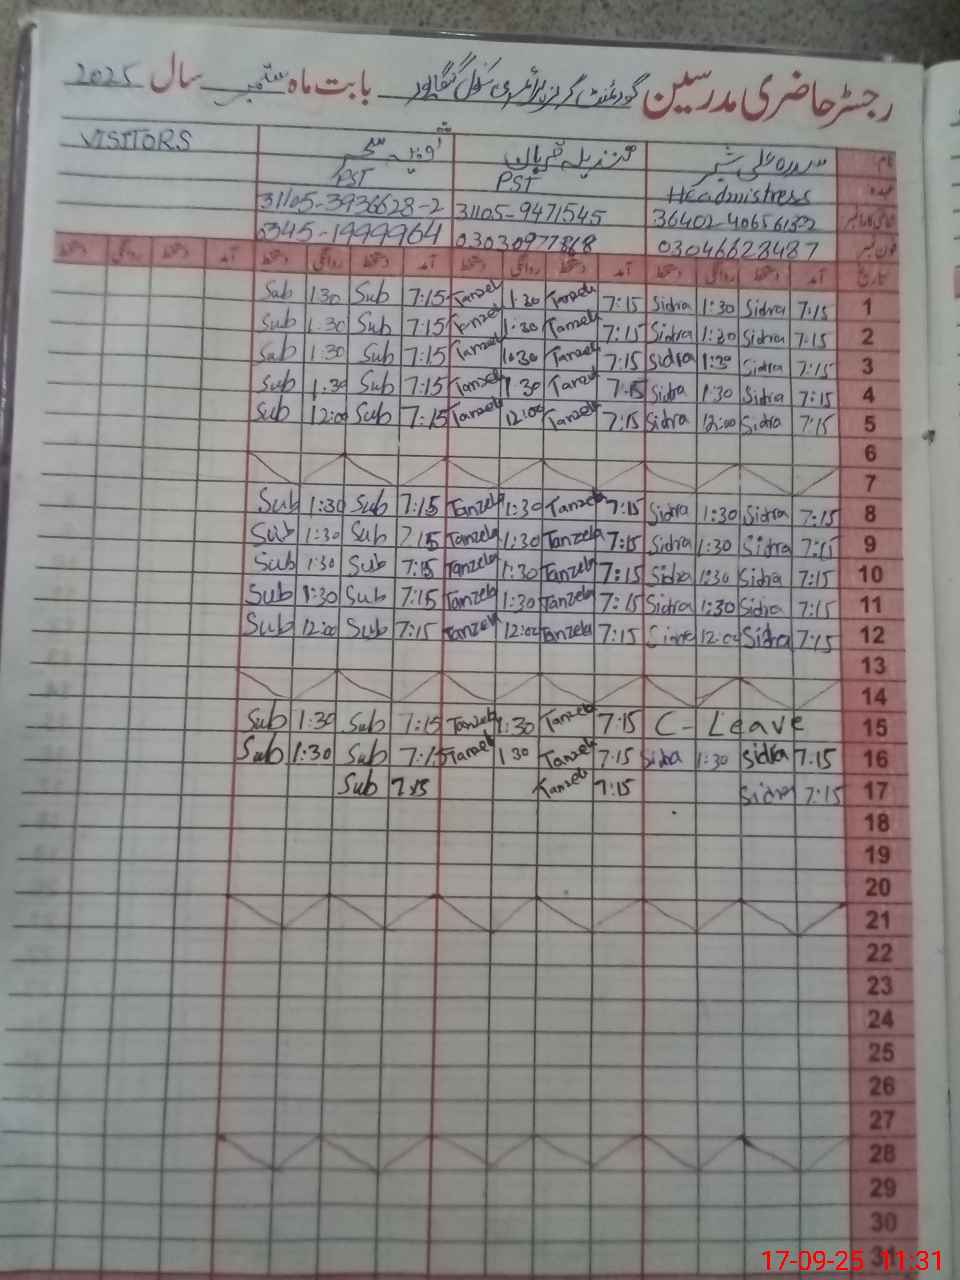 رجسٹر حاضری مدرسین گورنمنٹ گرلز پرائمری سکول بابت ماہ ستمبر سال 2025
نام سدرہ علی شبر تنزیلہ ثوبیہ سحر VISITORS
عہدہ Headmistress PST PST
36402-4065613-2 31105-9471545 31105-3936628-2
فون نمبر 03046628487 03030977868 0345-1999964
تاریخ آمد دستخط روانگی دستخط آمد دستخط روانگی دستخط آمد دستخط روانگی دستخط آمد دستخط روانگی دستخط
1 7:15 Sidra 1:30 Sidra 7:15 Tanzela 1:30 Tanzela 7:15 Sub 1:30 Sub
2 7:15 Sidra 1:30 Sidra 7:15 Tanzela 1:30 Tanzela 7:15 Sub 1:30 Sub
3 7:15 Sidra 1:30 Sidra 7:15 Tanzela 1:30 Tanzela 7:15 Sub 1:30 Sub
4 7:15 Sidra 1:30 Sidra 7:15 Tanzela 1:30 Tanzela 7:15 Sub 1:30 Sub
5 7:15 Sidra 12:00 Sidra 7:15 Tanzela 12:00 Tanzela 7:15 Sub 12:00 Sub
6
7
8 7:15 Sidra 1:30 Sidra 7:15 Tanzela 1:30 Tanzela 7:15 Sub 1:30 Sub
9 7:15 Sidra 1:30 Sidra 7:15 Tanzela 1:30 Tanzela 7:15 Sub 1:30 Sub
10 7:15 Sidra 1:30 Sidra 7:15 Tanzela 1:30 Tanzela 7:15 Sub 1:30 Sub
11 7:15 Sidra 1:30 Sidra 7:15 Tanzela 1:30 Tanzela 7:15 Sub 1:30 Sub
12 7:15 Sidra 12:00 Sidra 7:15 Tanzela 12:00 Tanzela 7:15 Sub 12:00 Sub
13
14
15 C- Leave 7:15 Tanzela 1:30 Tanzela 7:15 Sub 1:30 Sub
16 7:15 Sidra 1:30 Sidra 7:15 Tanzela 1:30 Tanzela 7:15 Sub 1:30 Sub
17 7:15 Sidra 7:15 Tanzela 7:15 Sub
18
19
20
21
22
23
24
25
26
27
28
29
30
31
17-09-25 11:31